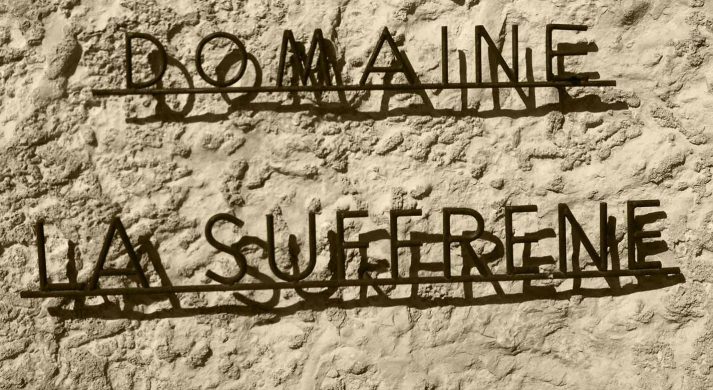 DOMAINE
LA SUFFRENE